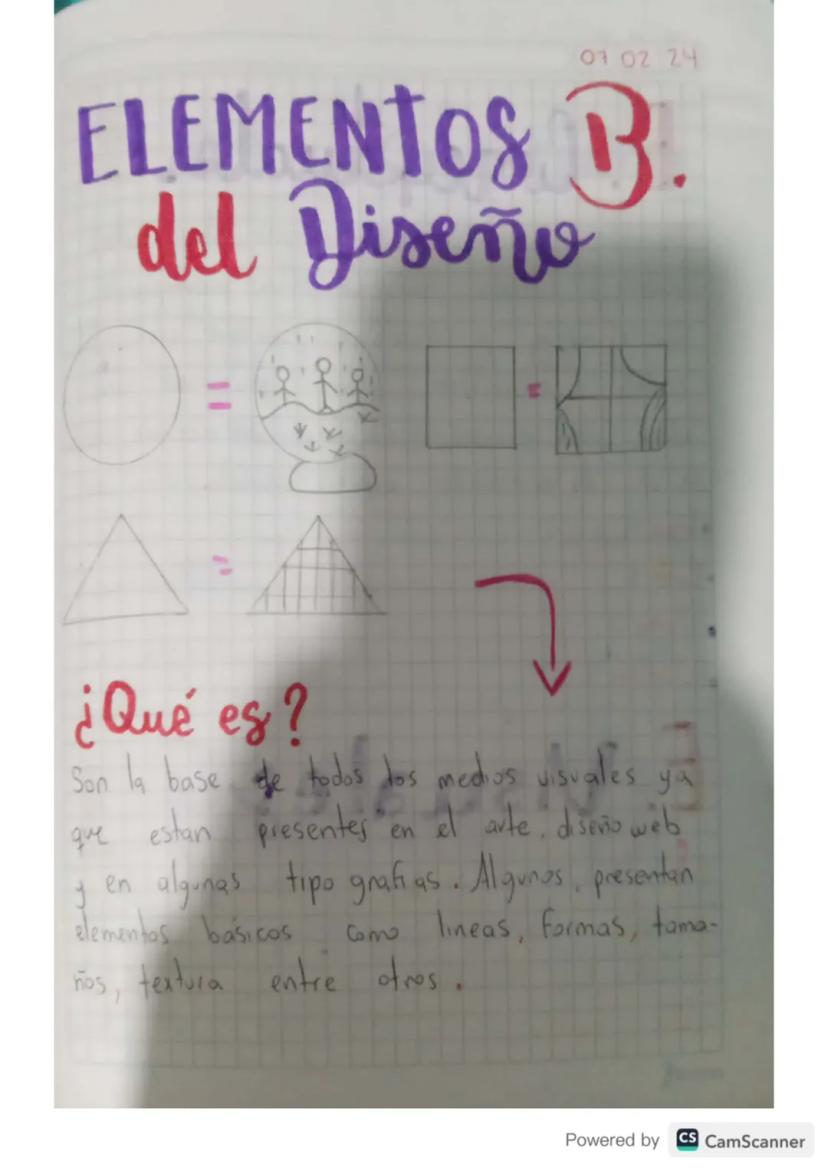 07 02 24
ELEMENTOS B.
del Diseño
¿Qué es?
Son la base de todos los medios visuales ya
que estan presentes en el arte, diseño web
y en algunas tipo grafias. Algunos, presentan
elementos básicos como lineas, formas, tama-
ños, textura entre otros.
Powered by CS CamScanner